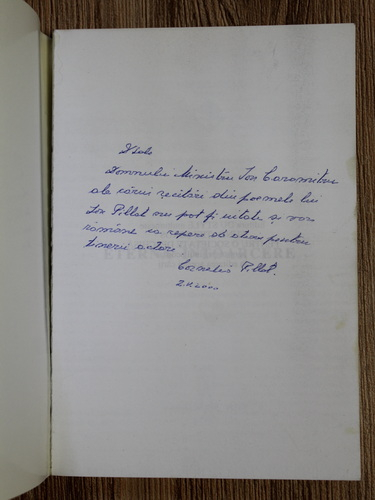 Dsale
Domnului Ministru Ion Caramitru
ale cărui recitări din poemele lui
Ion Pillat nu pot fi uitate și vor
rămâne ca repere de atins pentru
tinerii actori
Cornelia Pillat.